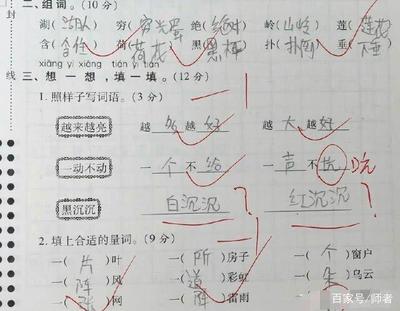 封
二、组词。(10分)
湖(湖人) 穷(穷光蛋) 绝(绝对) 岭(山岭) 莲(莲花)
含(含恨) 荷(荷花) 黑(黑棒) 扑(扑倒) 垂(下垂)
线
xiǎng yì xiǎng tián yì tián
三、想一想,填一填。(12分)
1.照样子写词语。(3分)
越来越亮 越 越好 越大越好
一动不动 一个不给 一声不坑 吭
黑沉沉 白沉沉 ? 红沉沉 ?
2.填上合适的量词。(9分)
一(片)叶 一(所)房子 一(个)窗户
一(阵)风 一(道)彩虹 一(朵)乌云
一(张)网 一(阵)雷雨
百家号/师者